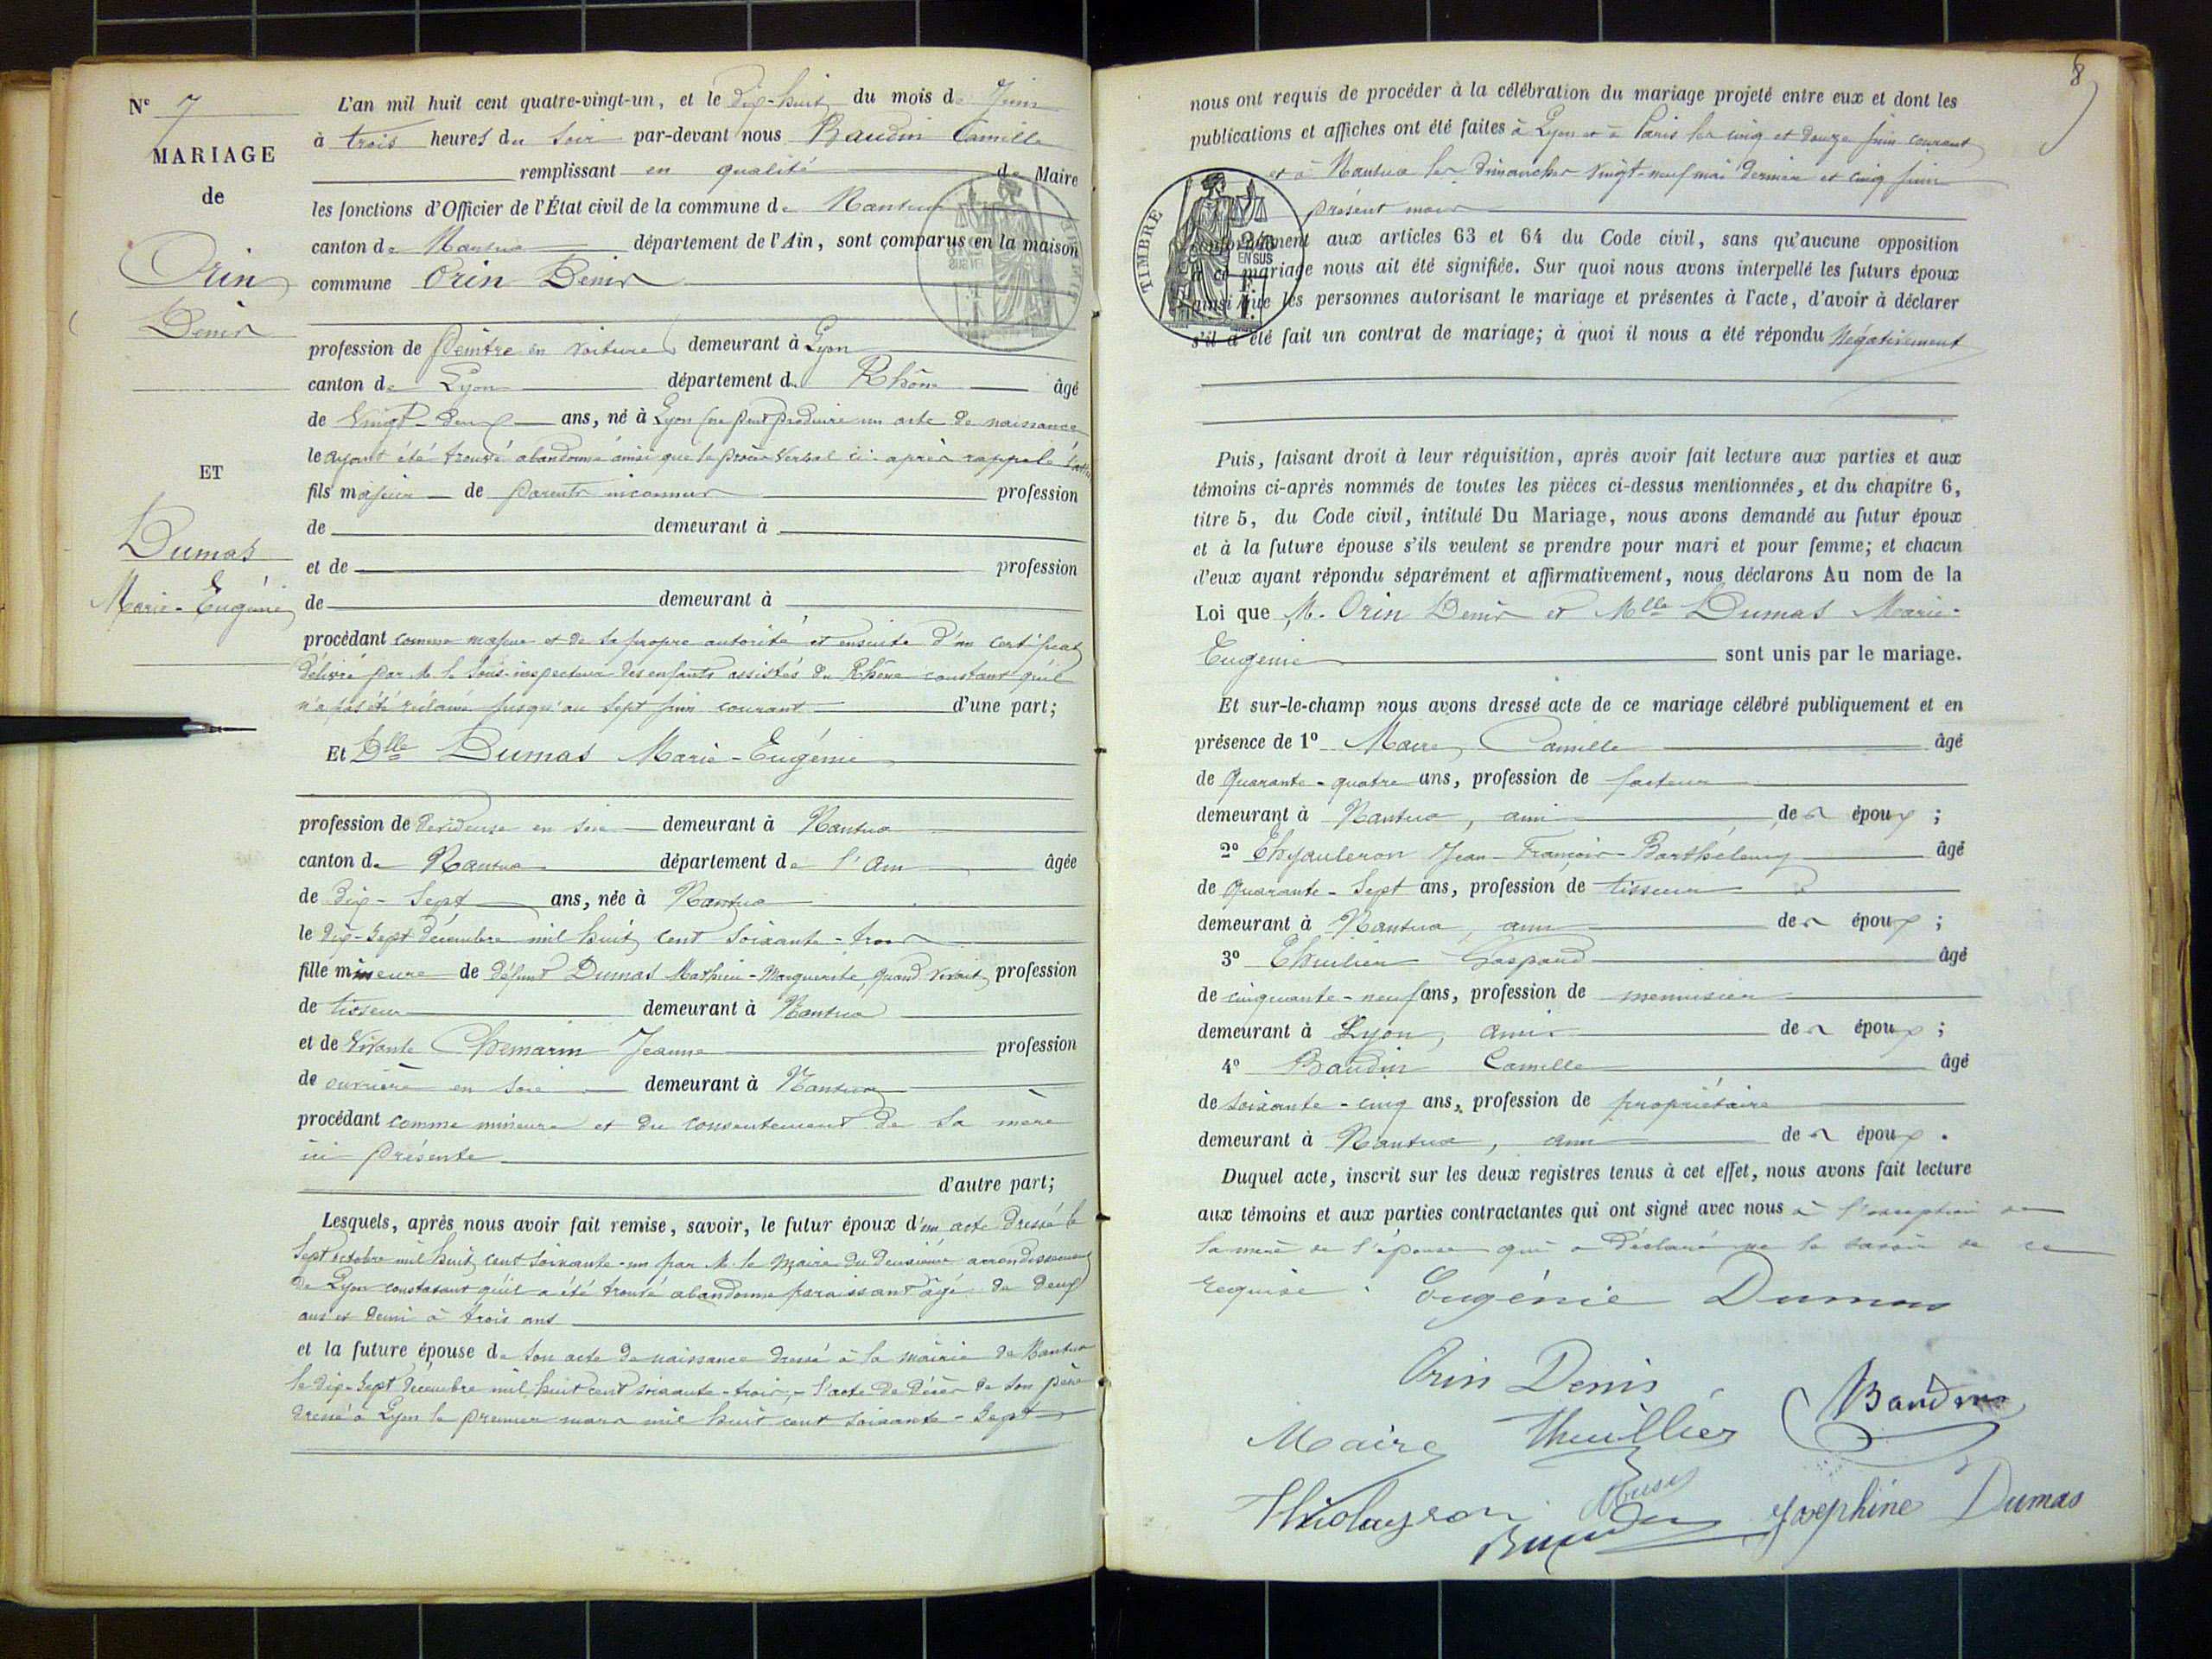 N° 7
MARIAGE
de
Orin
Denis
ET
Dumas
Marie-Eugénie
L'an mil huit cent quatre-vingt-un, et le dix-huit du mois de Juin
à trois heures du soir par-devant nous Baudin Camille
remplissant en qualité de Maire
les fonctions d'Officier de l'État civil de la commune de Nantua
canton de Nantua département de l'Ain, sont comparus en la maison
commune Orin Denis
profession de Peintre en voitures demeurant à Lyon
canton de Lyon département du Rhône âgé
de Vingt-deux ans, né à Lyon (ne peut produire un acte de naissance
le ayant été trouvé abandonné ainsi que le procès verbal ci-après rappelé
fils majeur de parents inconnus profession
de demeurant à
et de profession
de demeurant à
procédant comme majeur et de sa propre autorité et ensuite d'un certificat
délivré par M. le Sous-inspecteur des enfants assistés du Rhône constant qu'il
n'a pas été réclamé jusqu'au sept juin courant d'une part;
Et Dlle Dumas Marie-Eugénie
profession de dévideuse en soie demeurant à Nantua
canton de Nantua département de l'Ain âgée
de dix-sept ans, née à Nantua
le dix-sept décembre mil huit cent soixante-trois
fille mineure de défunt Dumas Mathieu-Marguerite, quand vivait profession
de tisseur demeurant à Nantua
et de vivante Chemarin Jeanne profession
de ouvrière en soie demeurant à Nantua
procédant comme mineure et du consentement de sa mère
ici présente
d'autre part;
Lesquels, après nous avoir fait remise, savoir, le futur époux d'un acte dressé le
sept octobre mil huit cent soixante-un par M. le Maire du deuxième arrondissement
de Lyon constatant qu'il a été trouvé abandonné paraissant âgé de deux
ans et demi à trois ans
et la future épouse de son acte de naissance dressé à la mairie de Nantua
le dix-sept décembre mil huit cent soixante-trois, - l'acte de décès de son père
dressé à Lyon le premier mars mil huit cent soixante-sept
8
nous ont requis de procéder à la célébration du mariage projeté entre eux et dont les
publications et affiches ont été faites à Lyon et à Paris les cinq et douze juin courant
et à Nantua les dimanches vingt-neuf mai dernier et cinq juin
présent mois
TIMBRE
2/10
EN SUS
conformément aux articles 63 et 64 du Code civil, sans qu'aucune opposition
à ce mariage nous ait été signifiée. Sur quoi nous avons interpellé les futurs époux
ainsi que les personnes autorisant le mariage et présentes à l'acte, d'avoir à déclarer
s'il a été fait un contrat de mariage; à quoi il nous a été répondu Négativement
Puis, faisant droit à leur réquisition, après avoir fait lecture aux parties et aux
témoins ci-après nommés de toutes les pièces ci-dessus mentionnées, et du chapitre 6,
titre 5, du Code civil, intitulé Du Mariage, nous avons demandé au futur époux
et à la future épouse s'ils veulent se prendre pour mari et pour femme; et chacun
d'eux ayant répondu séparément et affirmativement, nous déclarons Au nom de la
Loi que M. Orin Denis et Mlle Dumas Marie-
Eugénie sont unis par le mariage.
Et sur-le-champ nous avons dressé acte de ce mariage célébré publiquement et en
présence de 1° Maire Camille âgé
de Quarante-quatre ans, profession de facteur
demeurant à Nantua, ami des époux;
2° Jean-François-Barthélemy âgé
de Quarante-sept ans, profession de tisseur
demeurant à Nantua, ami des époux;
3° Thuilier Gaspard âgé
de cinquante-neuf ans, profession de menuisier
demeurant à Lyon, amis des époux;
4° Baudin Camille âgé
de soixante-cinq ans, profession de propriétaire
demeurant à Nantua, ami des époux.
Duquel acte, inscrit sur les deux registres tenus à cet effet, nous avons fait lecture
aux témoins et aux parties contractantes qui ont signé avec nous à l'exception de
la mère de l'épouse qui a déclaré ne le savoir de ce
requise.
Eugénie Dumas
Orin Denis
Baudin
Maire Thuillier
Josephine Dumas
Baudin